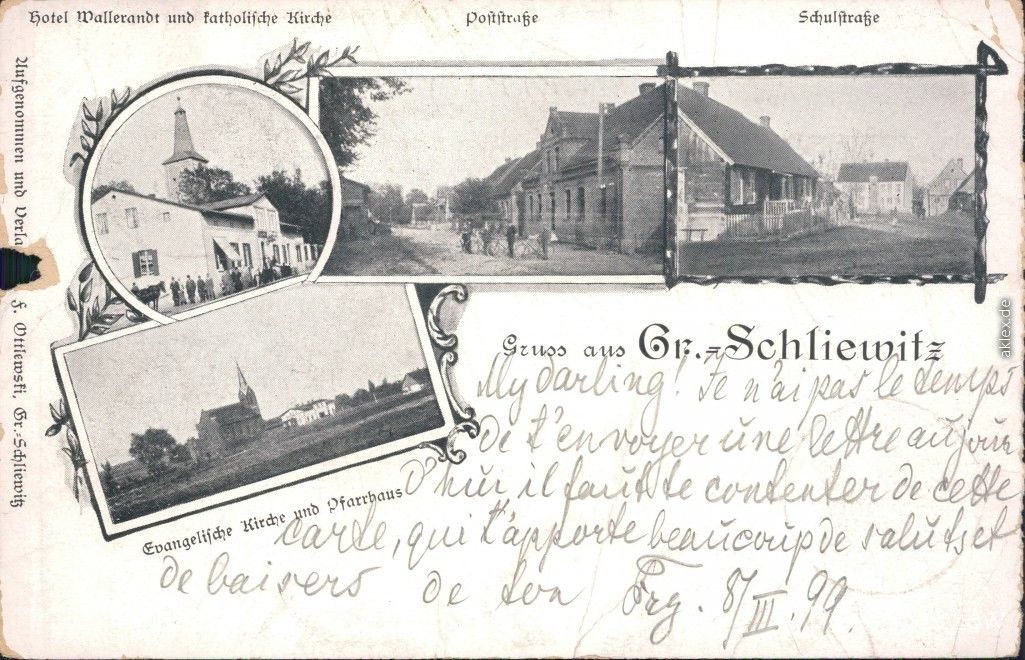 Hotel Wallerandt und katholische Kirche
Poststraße
Schulstraße
Aufgenommen und Verla F. Ottlewski, Gr.-Schliewitz
Gruss aus Gr.-Schliewitz
My darling! Je n'ai pas le temps
de t'envoyer une lettre aujour
d'hui il faut te contenter de cette
Evangelische Kirche und Pfarrhaus
carte, qui t'apporte beaucoup de saluts et
de baisers de ton 8/III. 99.
aklex.de